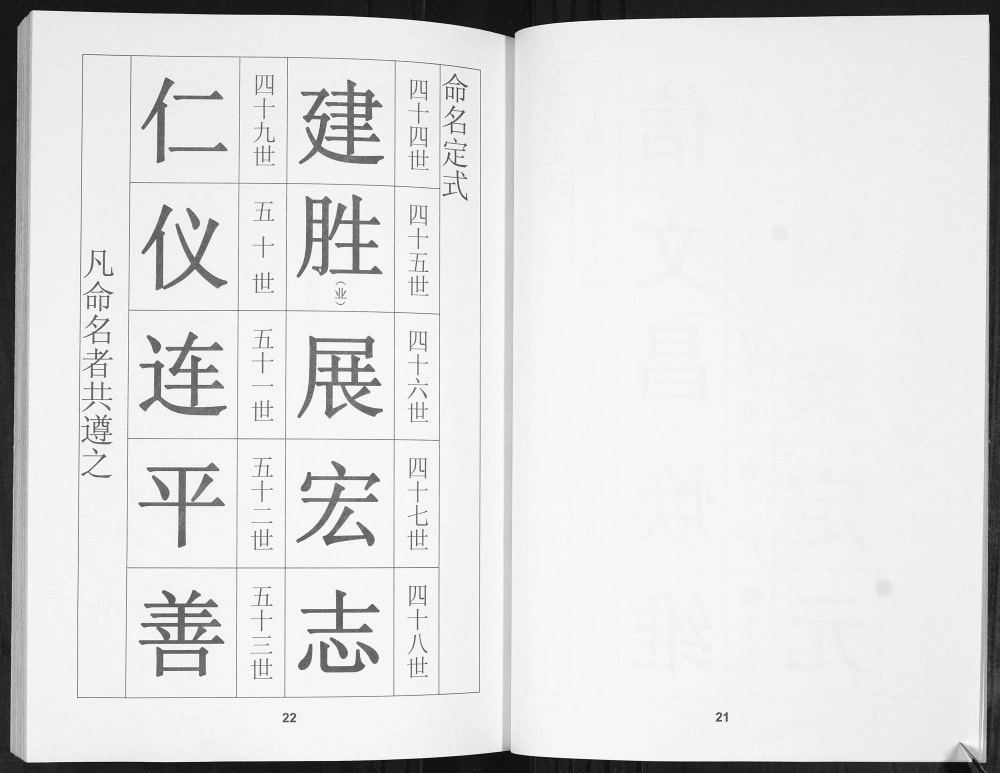 命名定式
四十四世
建
四十五世
胜
（业）
四十六世
展
四十七世
宏
四十八世
志
四十九世
仁
五十世
仪
五十一世
连
五十二世
平
五十三世
善
凡命名者共遵之
22
21